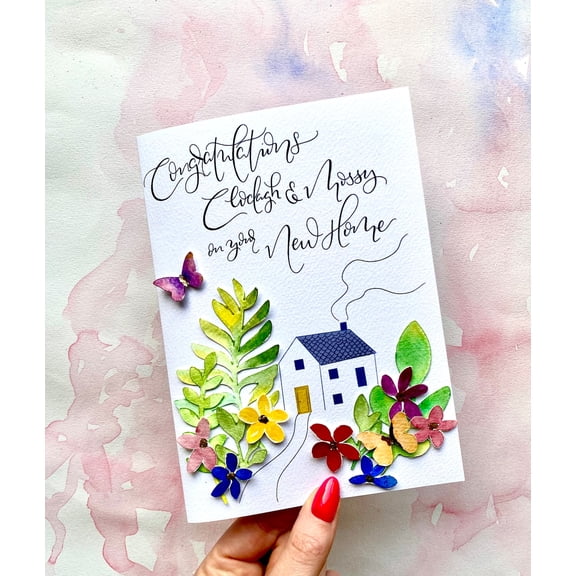 Congratulations
Clodagh & Mossy
on your New Home